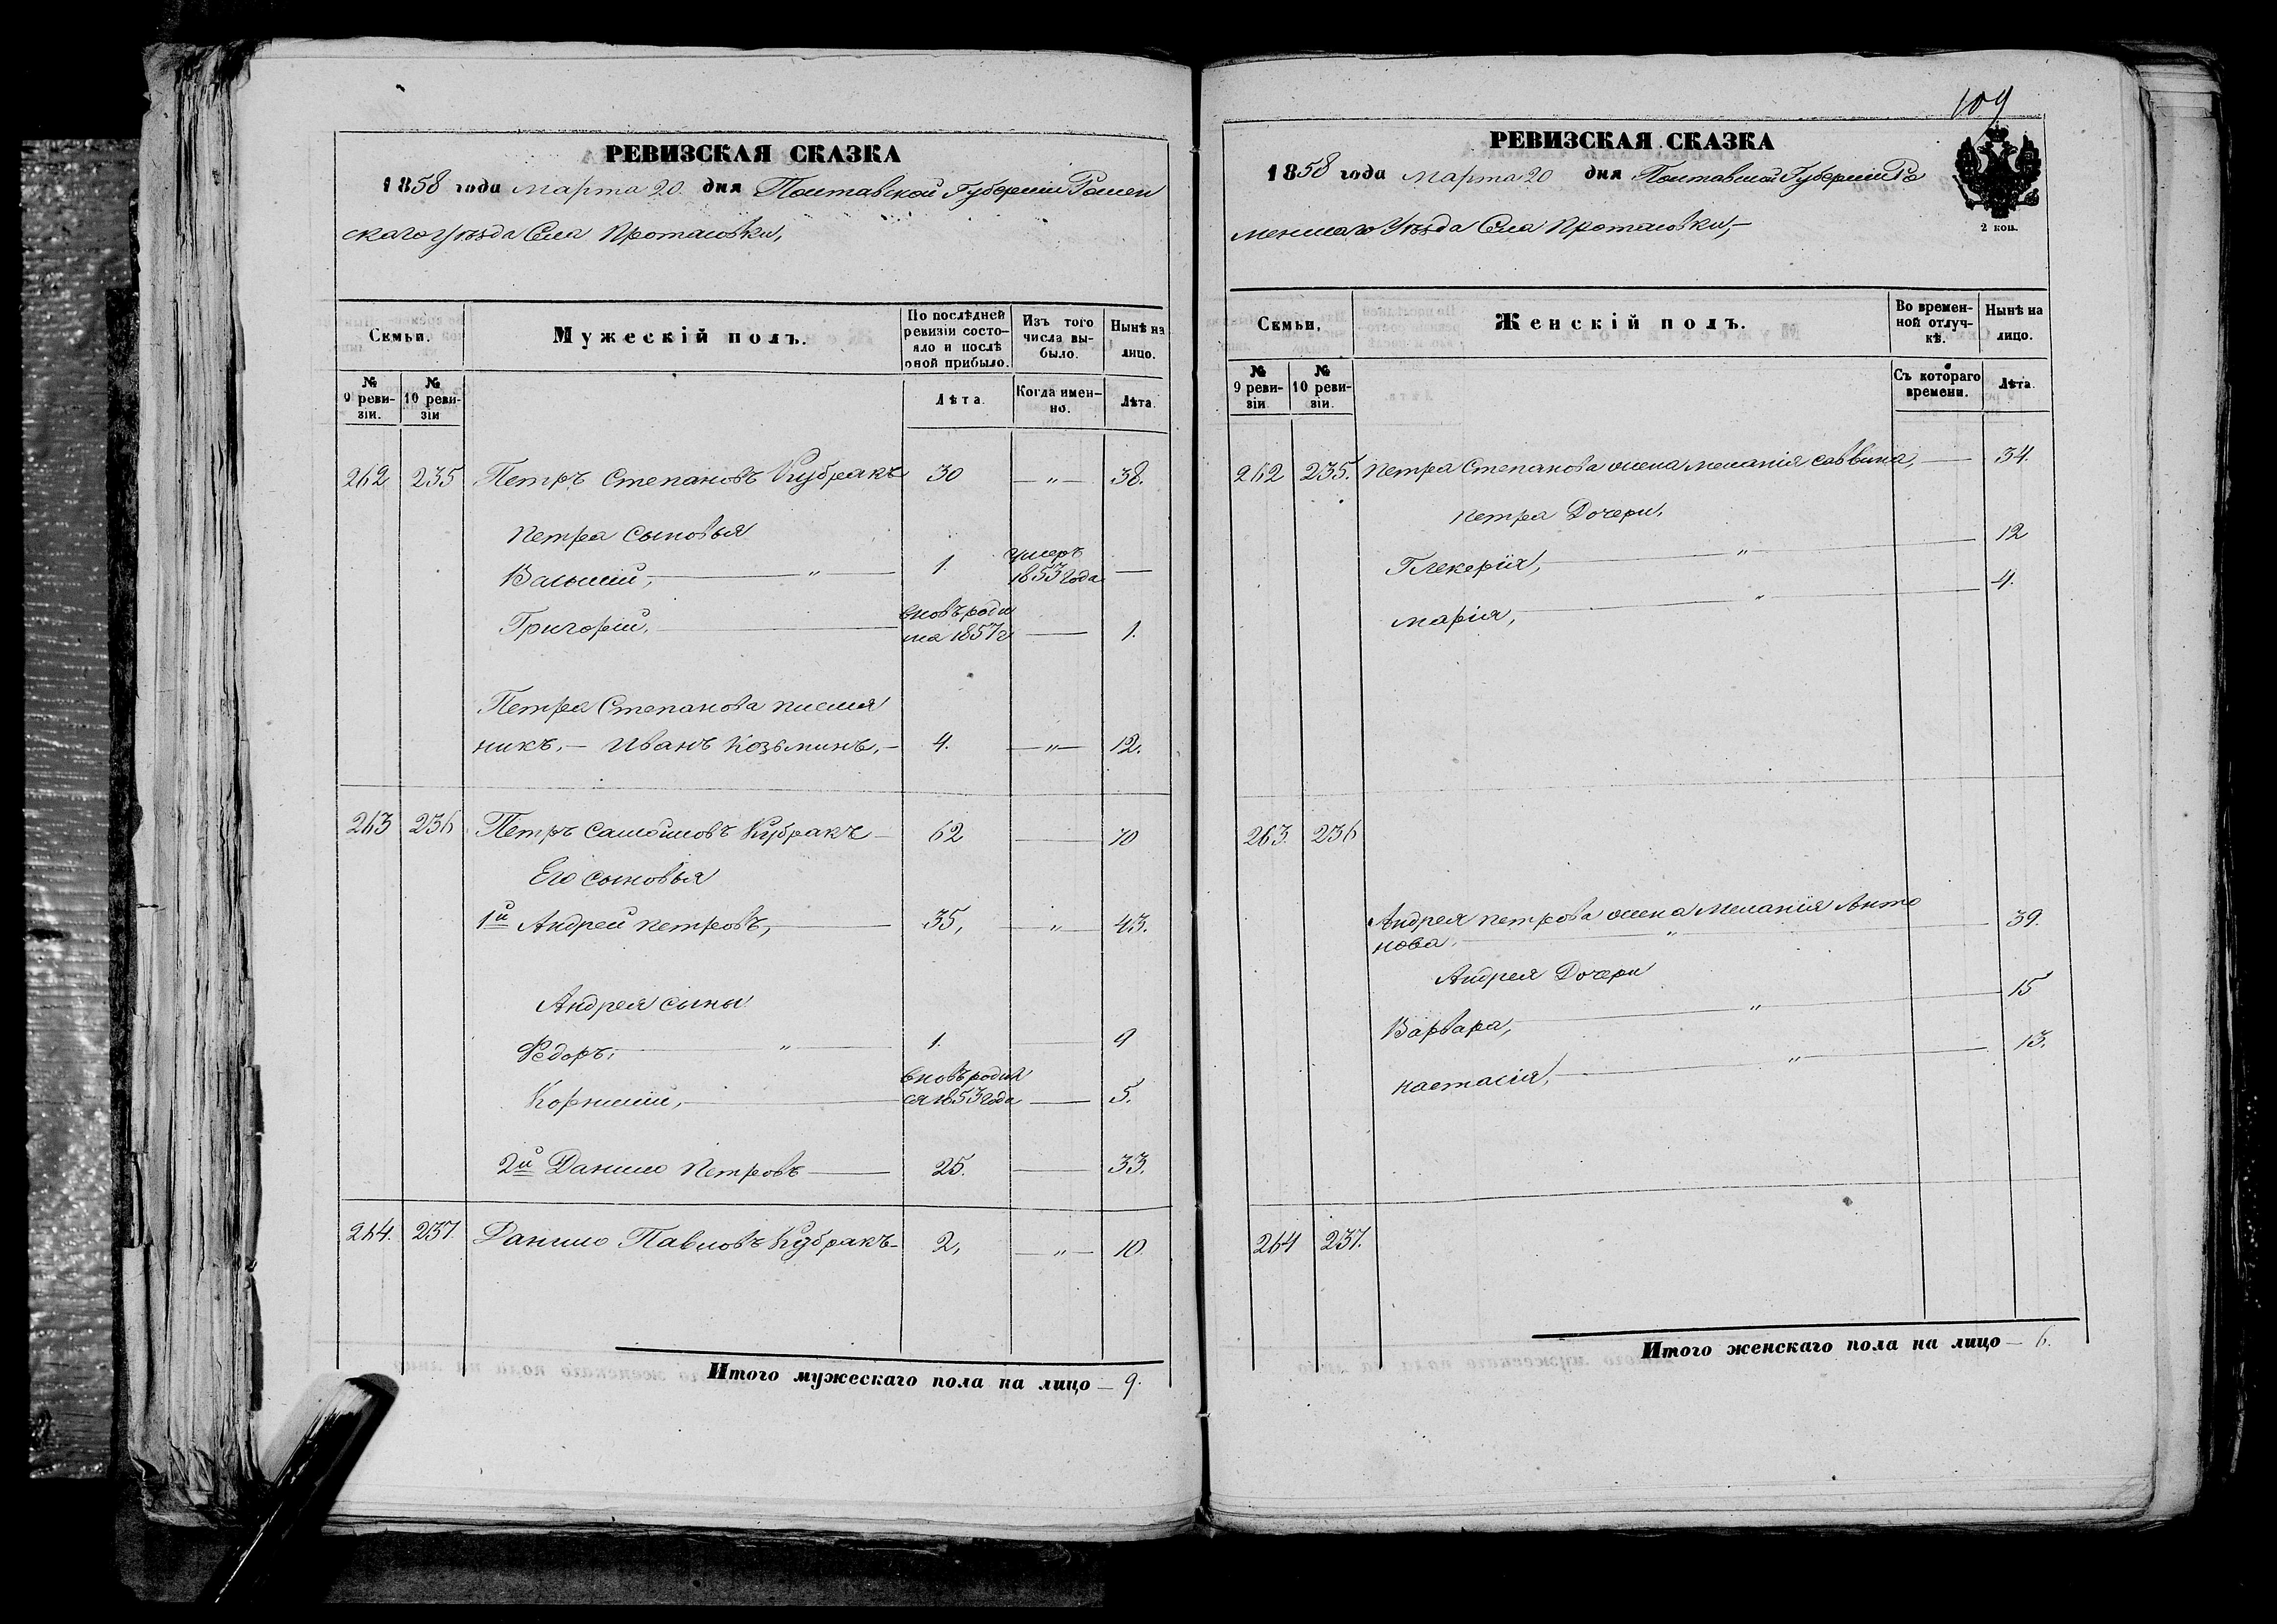 РЕВИЗСКАЯ СКАЗКА
1858 года Марта 20. дня Полтавской Губерніи Ромен
скаго Уѣзда Села Протасовки,
Семьи.
Мужескій полъ.
По послѣдней ревизіи состояло и послѣ оной прибыло.
Изъ того числа выбыло.
Нынѣ на лицо.
№ 9 ревизіи.
№ 10 ревизіи
Лѣта.
Когда именно.
Лѣта.
262 235 Петръ Степановъ Кубракъ 30 — " — 38.
Петра сыновья
Василій, — " — 1. умеръ 1853 года —
Григорій, — вновь роди 1857 г — 1.
Петра Степанова племян
никъ, — Иванъ Козьминъ, — 4. — " — 12.
263 236 Петръ Самойловъ Кубракъ — 62 — 70
Его сыновья
1й Андрей Петровъ, — 35, — " — 43.
Андрея сыны
Федоръ, — " — 1. — 9
Корнилій, — вновь родил
ся 1853 года — 5.
2й Данило Петровъ — 25. — 33.
264. 237. Данило Павловъ Кубракъ — 2, — " — 10.
Итого мужескаго пола на лицо — 9.
109
РЕВИЗСКАЯ СКАЗКА
1858 года Марта 20 дня Полтавской Губерніи Ро
менскаго Уѣзда Села Протасовки, —
2 коп.
Семьи,
Женскій полъ.
Во временной отлучкѣ.
Нынѣ на лицо.
№ 9 ревизіи
№ 10 ревизіи.
Съ котораго времени.
Лѣта.
262 235. Петра Степанова жена Меланія Саввина, — 34.
Петра Дочери,
Гликерія, — " — 12
Марія, — " — 4.
263. 236
Андрея Петрова жена Меланія Анто
нова, — " — 39.
Андрея Дочери
Варвара, — " — 15
Настасія, — " — 13.
264 237.
Итого женскаго пола на лицо — 6.